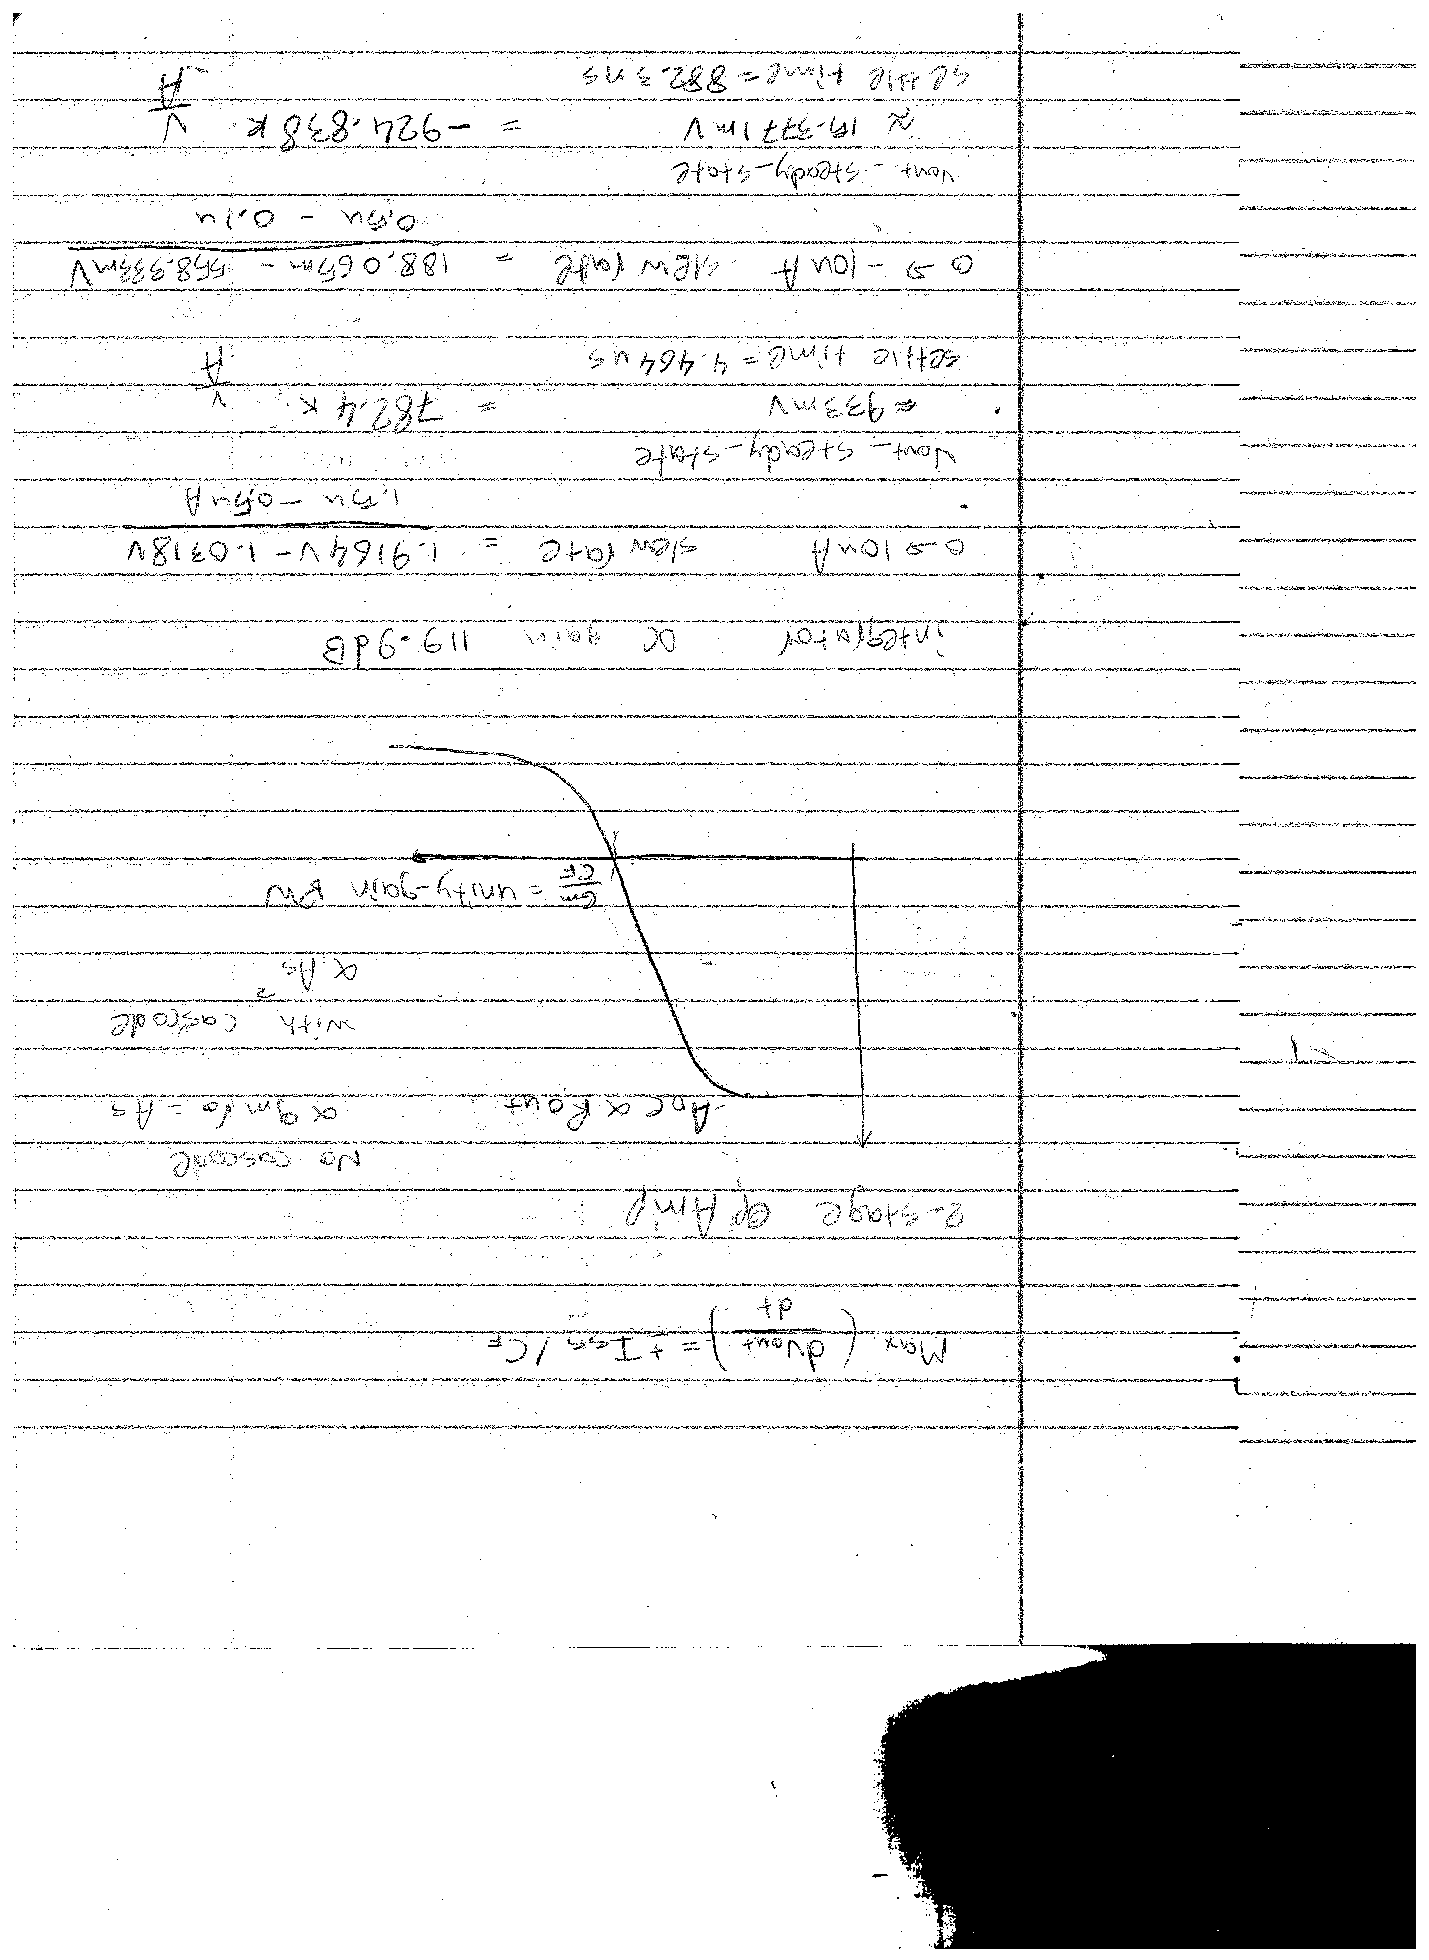 Max (dVout/dt) = + Iss / CF
2-stage Op Amp
No cascode
ADC α Rout α gm ro = As
with cascode
α As²
Gm/CF = unity-gain BW
integrator DC gain 119.9dB
0→10uA slew rate = 1.9164V - 1.0318V
1.5u - 0.5uA
Vout-steady-state
≈ 933mV = 782.4 K V/A
settle time = 4.464us
0→ -10uA slew rate = 188.065m - 558.333mV
0.5u - 0.1u
Vout-steady-state
≈ 19.3771mV = -924.838 K V/A
settle time = 882.3ns